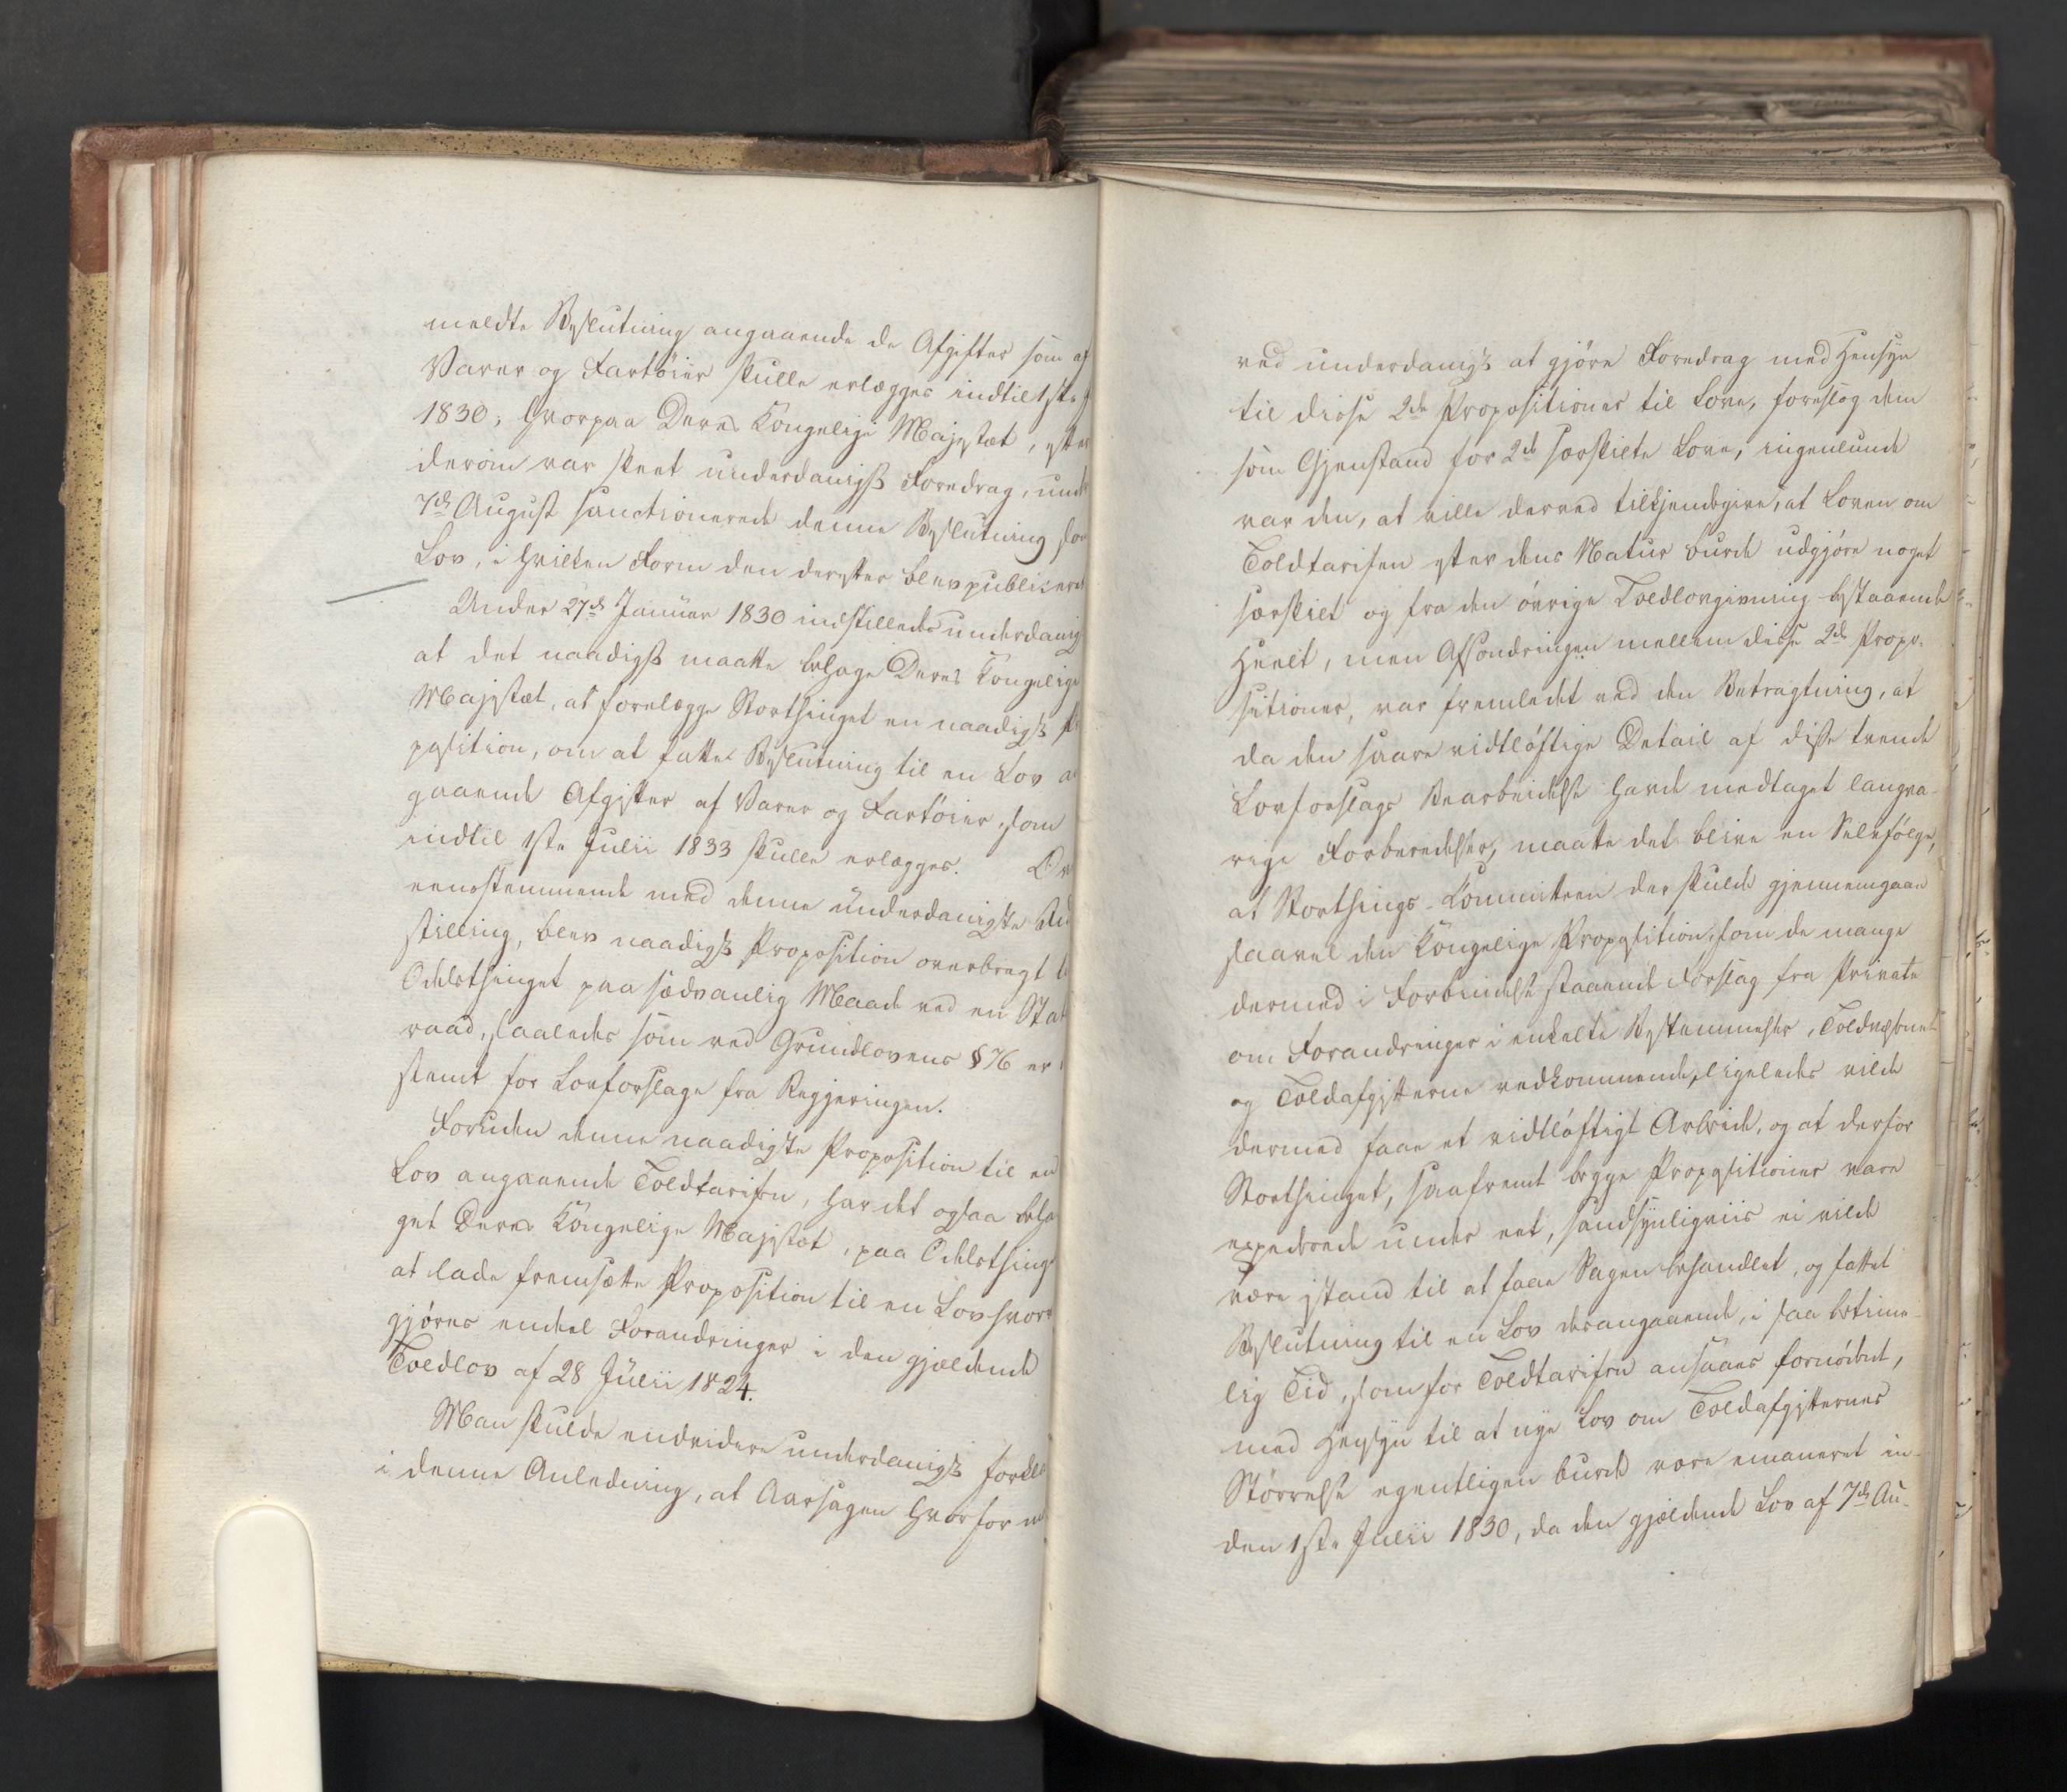 meldte Beslutning angaaende de Afgifter som af
Varer og Fartøier skulle erlægges indtil 1ste
1830; hvorpaa Deres Kongelige Majestæt, efter
derom var skeet underdanigst Foredrag, under
7de August sanctionerede denne Beslutning som
Lov, i hvilken Form den derefter blev publiceret
Under 27de Januar 1830 indstilledes underdanigst
at det naadigst maatte behage Deres Kongelige
Majestæt, at forelægge Storthinget en naadigst Pro
position, om at fatte Beslutning til en Lov an
gaaende Afgifter af Varer og Fartøier, som
indtil 1ste Julii 1833 skulle erlægges. Ov
eensstemmende med denne underdanigste Ind
stilling, blev naadigst Proposition overbragt til
Odelsthinget paa sædvanlig Maade ved en Stats
raad, saaledes som ved Grundlovens § 76 er be
stemt for Lovforslage fra Regjeringen.
Foruden denne naadigste Proposition til en
Lov angaaende Toldtarifen, har det ogsaa beha
get Deres Kongelige Majestæt, paa Odelsthinget
at lade fremsætte Proposition til en Lov hvorved
gjøres endeel Forandringer i den gjældende
Toldlov af 28 Julii 1824.
Man skulde endvidere underdanigst forkla
i denne Anledning, at Aarsagen hvorfor m
ved underdanigst at gjøre Foredrag med Hensyn
til disse 2de Propositioner til Love, foreslog dem
som Gjenstand for 2de særskilte Love, ingenlunde
var den, at ville derved tilkjendegive, at Loven om
Toldtarifen efter dens Natur burde udgjøre noget
særskilt og fra den øvrige Toldlovgivning bestaaende
Heelt, men Afsondringen mellem disse 2de Propo-
sitioner, var fremledet ved den Betragtning, at
da den saare vidtløftige Detail af disse tvende
Lovforslags Bearbeidelse havde medtaget langva-
rige Forberedelser, maatte det blive en Selvfølge,
at Storthings-Committeen der skulde gjennemgaae
saavel den Kongelige Proposition, som de mange
dermed i Forbindelse staaende Forslag fra Private
om Forandringer i enkelte Bestemmelser, Toldvæsenet
og Toldafgifterne vedkommende, ligeledes vilde
dermed faae et vidtløftigt Arbeide, og at derfor
Storthinget, saafremt begge Propositioner vare
expederede under eet, sandsynligviis ei vilde
være istand til at faae Sagen behandlet, og fattet
Beslutning til en Lov derangaaende, i saa betime-
lig Tid, som for Toldtarifen ansaaes fornødent,
med Hensyn til at nye Lov om Toldafgifternes
Størrelse egentligen burde være emaneret in-
den 1ste Julii 1830, da den gjældende Lov af 7de Au-